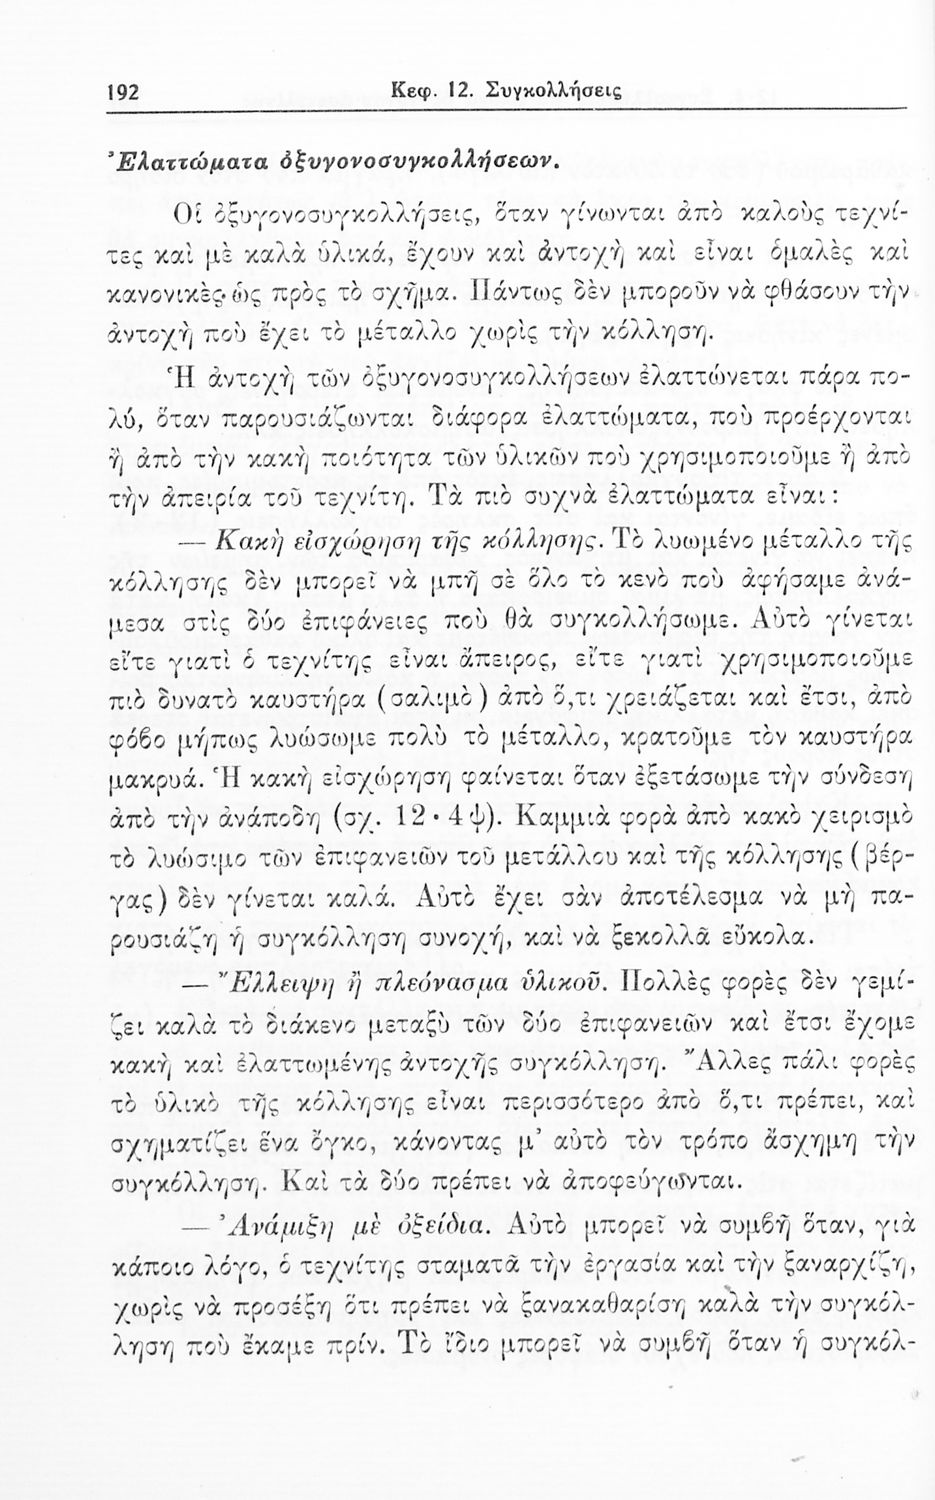 192 Κεφ. 12. Συγκολλήσεις
Ἐλαττώματα ὀξυγονοσυγκολλήσεων.
Οἱ ὀξυγονοσυγκολλήσεις, ὅταν γίνωνται ἀπὸ καλοὺς τεχνί-
τες καὶ μὲ καλὰ ὑλικά, ἔχουν καὶ ἀντοχὴ καὶ εἶναι ὁμαλὲς καὶ
κανονικὲς ὡς πρὸς τὸ σχῆμα. Πάντως δὲν μποροῦν νὰ φθάσουν τὴν
ἀντοχὴ ποὺ ἔχει τὸ μέταλλο χωρὶς τὴν κόλληση.
Ἡ ἀντοχὴ τῶν ὀξυγονοσυγκολλήσεων ἐλαττώνεται πάρα πο-
λύ, ὅταν παρουσιάζωνται διάφορα ἐλαττώματα, ποὺ προέρχονται
ἢ ἀπὸ τὴν κακὴ ποιότητα τῶν ὑλικῶν ποὺ χρησιμοποιοῦμε ἢ ἀπὸ
τὴν ἀπειρία τοῦ τεχνίτη. Τὰ πιὸ συχνὰ ἐλαττώματα εἶναι :
— Κακὴ εἰσχώρηση τῆς κόλλησης. Τὸ λυωμένο μέταλλο τῆς
κόλλησης δὲν μπορεῖ νὰ μπῆ σὲ ὅλο τὸ κενὸ ποὺ ἀφήσαμε ἀνά-
μεσα στὶς δύο ἐπιφάνειες ποὺ θὰ συγκολλήσωμε. Αὐτὸ γίνεται
εἴτε γιατὶ ὁ τεχνίτης εἶναι ἄπειρος, εἴτε γιατὶ χρησιμοποιοῦμε
πιὸ δυνατὸ καυστήρα (σαλιμὸ) ἀπὸ ὅ,τι χρειάζεται καὶ ἔτσι, ἀπὸ
φόβο μήπως λυώσωμε πολὺ τὸ μέταλλο, κρατοῦμε τὸν καυστήρα
μακρυά. Ἡ κακὴ εἰσχώρηση φαίνεται ὅταν ἐξετάσωμε τὴν σύνδεση
ἀπὸ τὴν ἀνάποδη (σχ. 12·4ψ). Καμμιὰ φορὰ ἀπὸ κακὸ χειρισμὸ
τὸ λυώσιμο τῶν ἐπιφανειῶν τοῦ μετάλλου καὶ τῆς κόλλησης (βέρ-
γας) δὲν γίνεται καλά. Αὐτὸ ἔχει σὰν ἀποτέλεσμα νὰ μὴ πα-
ρουσιάζη ἡ συγκόλληση συνοχή, καὶ νὰ ξεκολλᾶ εὔκολα.
— Ἔλλειψη ἢ πλεόνασμα ὑλικοῦ. Πολλὲς φορὲς δὲν γεμί-
ζει καλὰ τὸ διάκενο μεταξὺ τῶν δύο ἐπιφανειῶν καὶ ἔτσι ἔχομε
κακὴ καὶ ἐλαττωμένης ἀντοχῆς συγκόλληση. Ἄλλες πάλι φορὲς
τὸ ὑλικὸ τῆς κόλλησης εἶναι περισσότερο ἀπὸ ὅ,τι πρέπει, καὶ
σχηματίζει ἕνα ὄγκο, κάνοντας μ' αὐτὸ τὸν τρόπο ἄσχημη τὴν
συγκόλληση. Καὶ τὰ δύο πρέπει νὰ ἀποφεύγωνται.
— Ἀνάμιξη μὲ ὀξείδια. Αὐτὸ μπορεῖ νὰ συμβῆ ὅταν, γιὰ
κάποιο λόγο, ὁ τεχνίτης σταματᾶ τὴν ἐργασία καὶ τὴν ξαναρχίζη,
χωρὶς νὰ προσέξη ὅτι πρέπει νὰ ξανακαθαρίση καλὰ τὴν συγκόλ-
ληση ποὺ ἔκαμε πρίν. Τὸ ἴδιο μπορεῖ νὰ συμβῆ ὅταν ἡ συγκόλ-